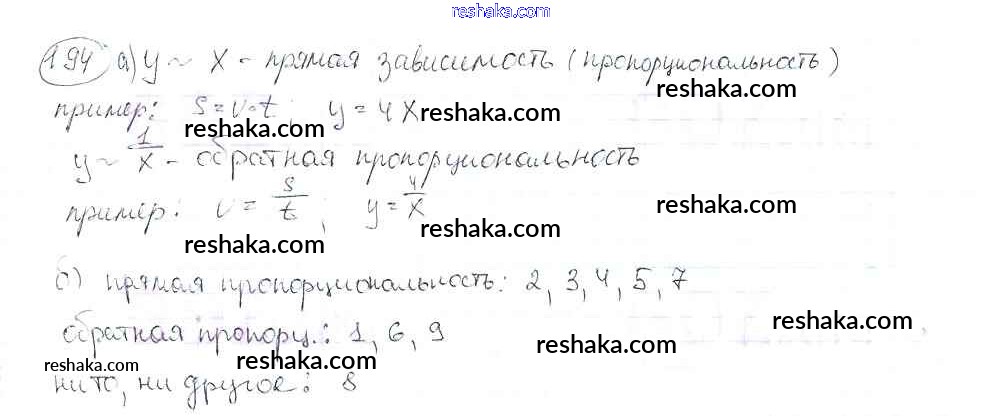 reshaka.com
194 а) y ~ x - прямая зависимость (пропорциональность)
reshaka.com
пример: s = v·t; y = 4x
reshaka.com
reshaka.com
y ~ 1/x - обратная пропорциональность
пример: v = s/t; y = 4/x
reshaka.com
reshaka.com
reshaka.com
б) прямая пропорциональность: 2, 3, 4, 5, 7
reshaka.com
обратная пропорц.: 1, 6, 9
reshaka.com
reshaka.com
reshaka.com
ни то, ни другое: 8